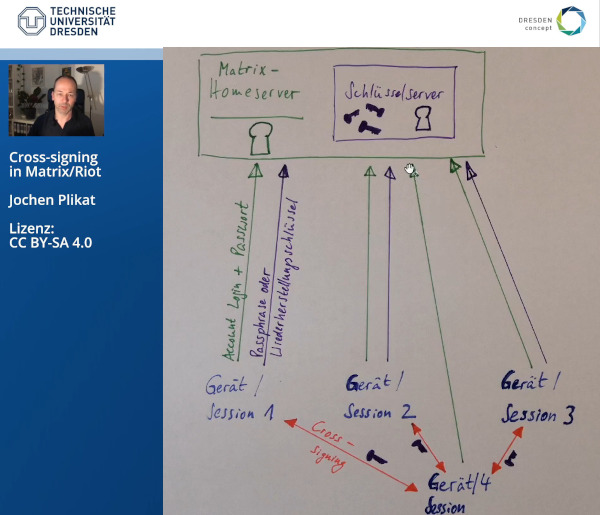 TECHNISCHE
UNIVERSITÄT
DRESDEN
DRESDEN
concept
Cross-signing
in Matrix/Riot
Jochen Plikat
Lizenz:
CC BY-SA 4.0
Matrix-
Homeserver
Schlüsselserver
Account Login + Passwort
Passphrase oder
Wiederherstellungsschlüssel
Gerät/
Session 1
Gerät/
Session 2
Gerät/
Session 3
Cross-
signing
Gerät/4
Session